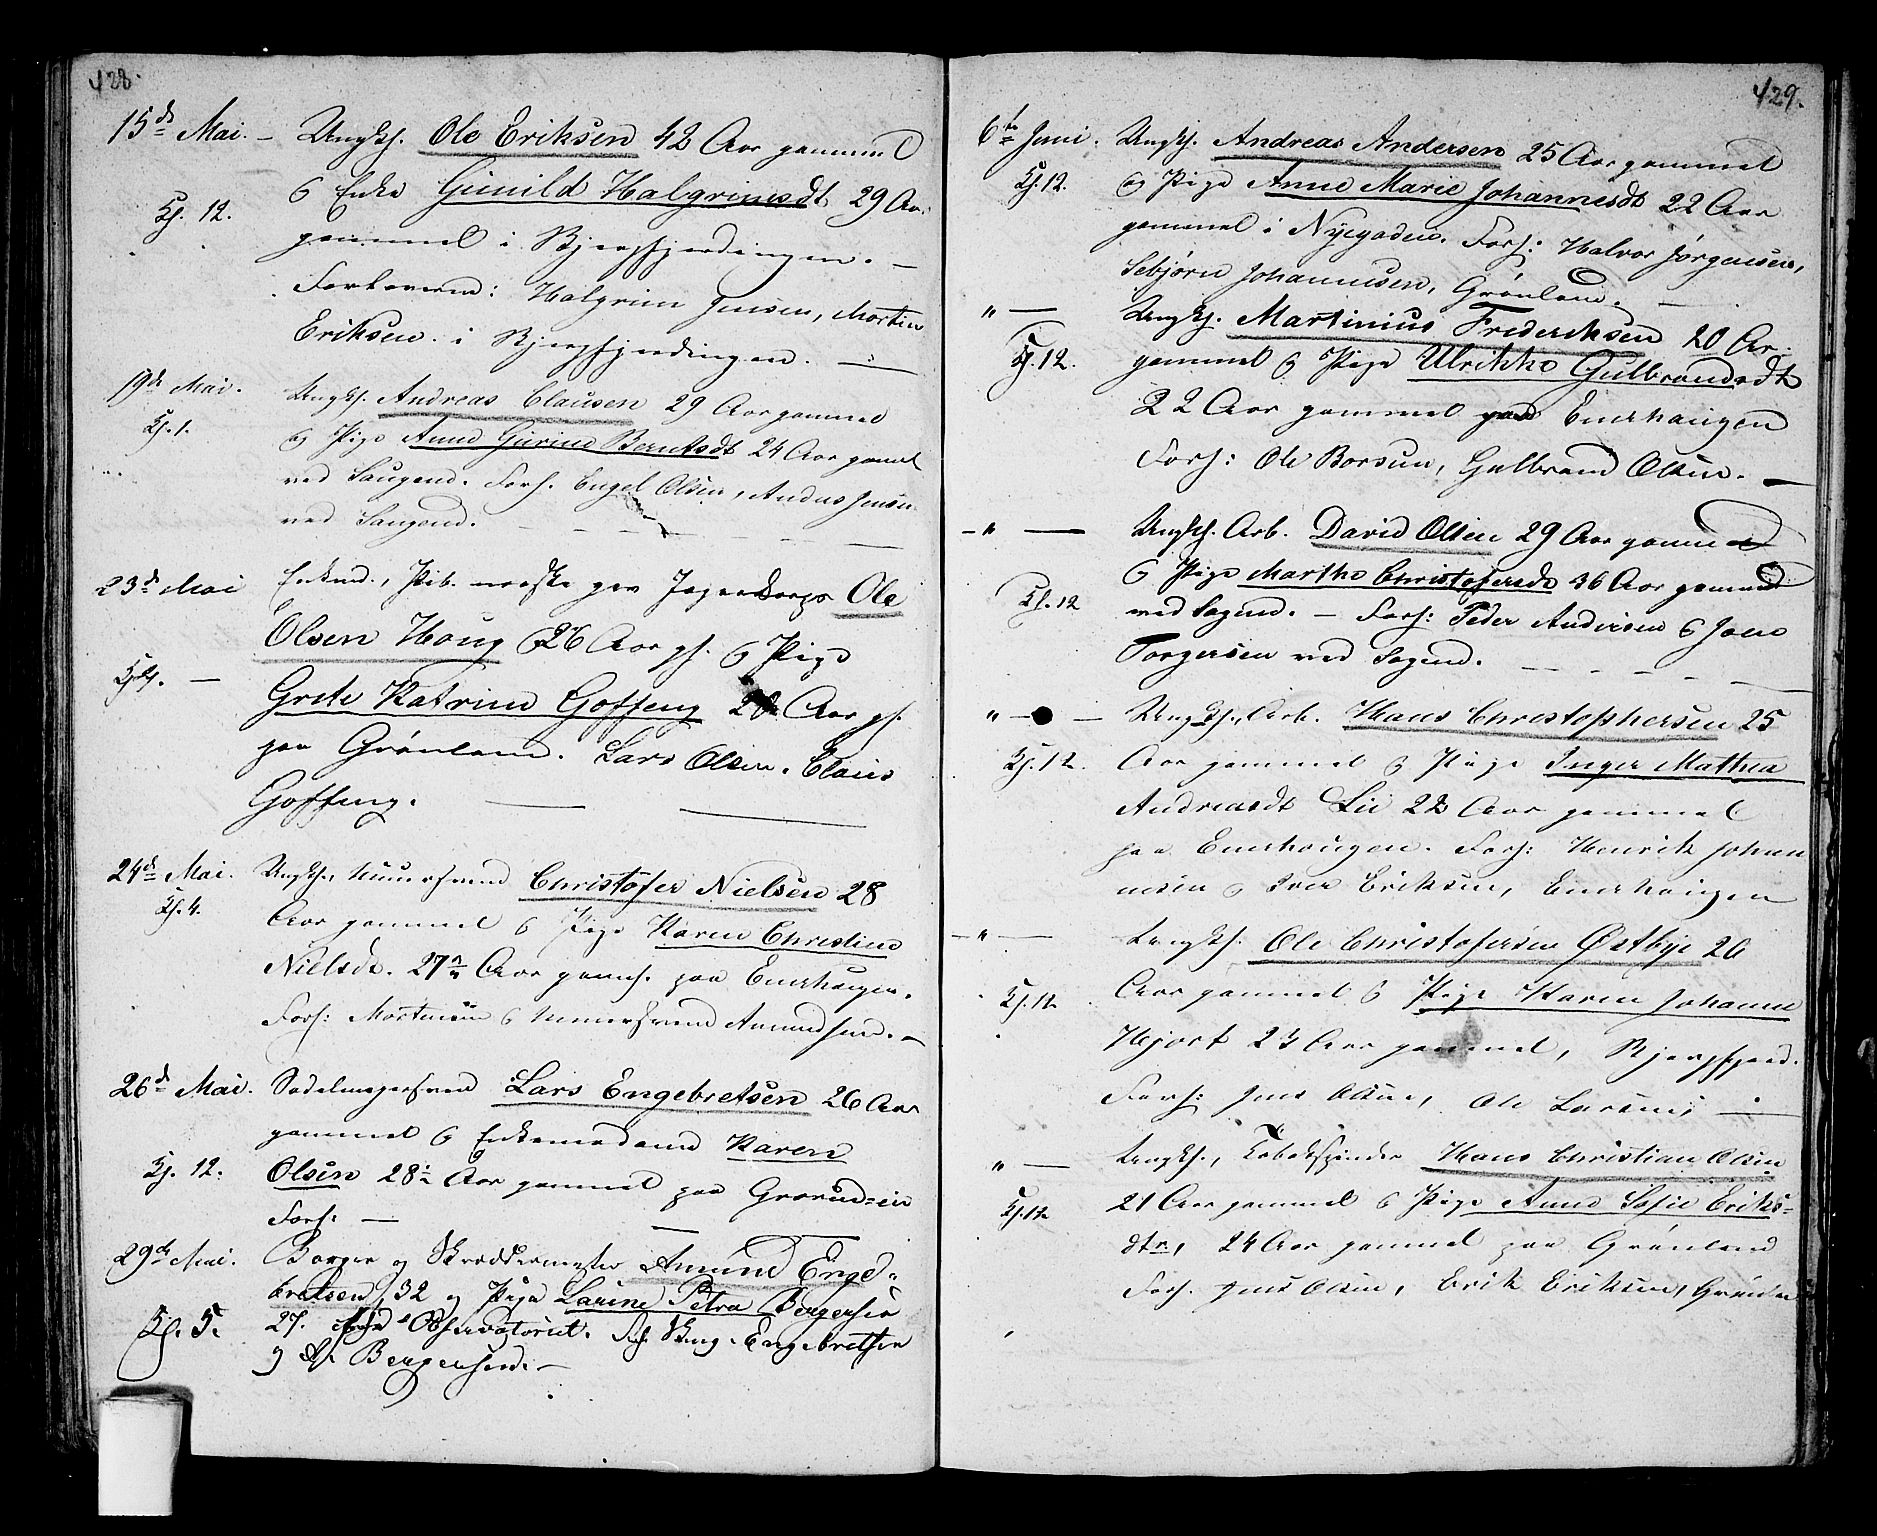 428.
15de Mai. – Ungk. Ole Eriksen 42 Aar gammel
Kl. 12. & Enke Gunild Halgrimsdt 29 Aar
gammel i Bjergfjerdingen. –
Forlovere: Halgrim Jensen, Morten
Eriksen i Bjergfjerdingen. –
19de Mai. Ungk. Andreas Clausen 29 Aar gammel
Kl. 1. & Pige Anne Gurine Berntsdt 24 Aar gamel
ved Saugene. Forl. Engel Olsen, Andas Jensen
ved Saugene.
23de Mai Enkemd., norske Jægerkorps Ole
Olsen Houg 26 Aar gl. & Pige
Grete Katrine Goffeng Aar gl.
paa Grønland. Lars Olsen. Claus
Goffeng.
24de Mai. Ungk., Muursvend Christofer Nielsen 28
Kl. 4. Aar gammel & Pige Karen Christine
Nielsdt. 27 Aar gaml. paa Enerhaugen.
Forl: Mortensen & Amundsen. –
26de Mai. Sadelmagersvend Lars Engebretsen 26 Aar
gammel & Enkemadame Karen
Kl. 12. Olsen 28 Aar gammel paa
Forl: –
29de Mai. Borger og Skreddermester Amund Enge-
bretsen 32 og Pige Larine Petra Bergersen
Kl. 5. 27. Observatoriet. Engebretsen
og Bergersen. –
429.
6te Juni. Ungk. Andreas Andersen 25 Aar gammel
Kl. 12. & Pige Anne Marie Johannesdt 22 Aar
gammel i Nyegaden. Forl: Halvor Jørgensen,
Sebjørn Johannesen, Grønland. –
" – Ungk. Martinius Frederiksen 20 Ar.
Kl. 12. gammel & Pige Ulrikke Gulbrandsdt
22 Aar gammel paa Enerhaugen
Forl: Ole Borsun, Gulbrand Olsen. –
– " – Ungk. Arb. David Olsen 29 Aar gammel
& Pige Marthe Christofersdt 36 Aar gammel
Kl. 12 ved Sagene. – Forl: Peder Andersen & Joen
Torgersen ved Sagene.
" – – Ungk., Arb. Hans Christophersen 25
Kl. 12. Aar gammel & Pige Inger Mathea
Andreasdt Lie 22 Aar gammel
paa Enerhaugen. Forl: Henrik Johan
nesen & Iver Eriksen, Enerhaugen
– " – Ungk. Ole Christofersen Østbye 26
Kl. 12 Aar gammel & Pige Karen Johanne
Hjort 23 Aar gammel, Bjergfjerd.
Forl: Jens Olsen, Ole Larsens –
" – Ungk., Tobakspinder Hans Christian Olsen
Kl. 12 21 Aar gammel & Pige Anne Sofie Eriks-
dtr, 24 Aar gammel paa Grønland
Forl. Jens Olsen, Erik Eriksen, Grønland